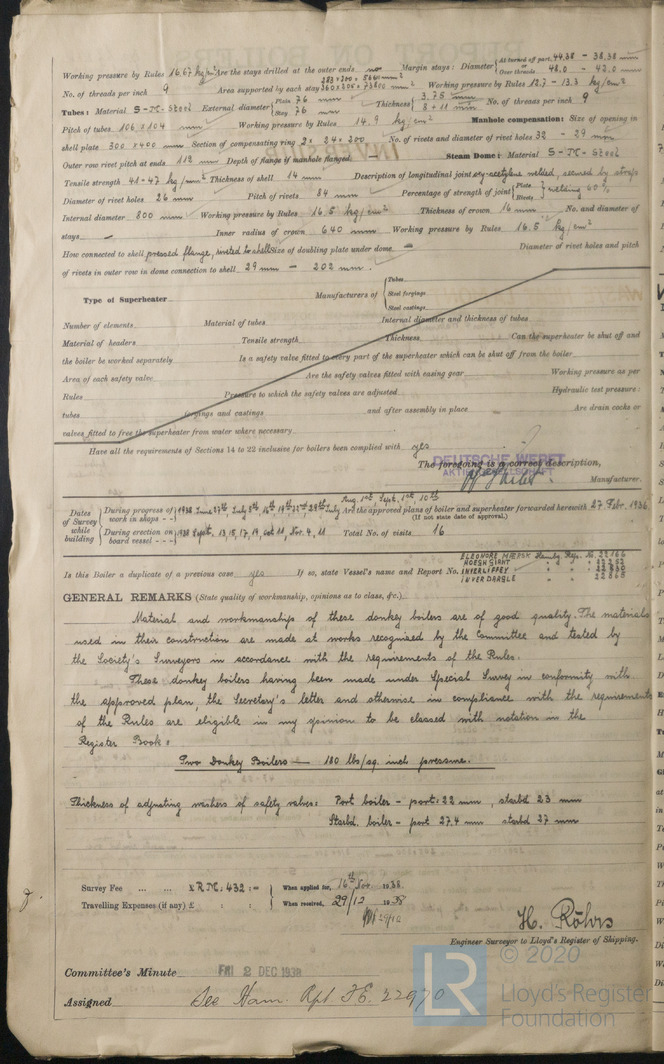 Working pressure by Rules 16.67 kg/cm² Are the stays drilled at the outer ends no Margin stays: Diameter { At turned off part, 44.38 - 38.38 mm
Over threads 48.0 - 42.0 mm
No. of threads per inch 9 Area supported by each stay Working pressure by Rules 12.7 - 13.3 kg/cm²
Tubes: Material S-M-Steel External diameter { Plain 76 mm Stay 76 mm Thickness { 3.75 mm No. of threads per inch 9
Pitch of tubes 106 x 104 mm Working pressure by Rules 14.9 kg/cm² Manhole compensation: Size of opening in
shell plate 300 x 400 mm Section of compensating ring 2 x 24 x 200 No. of rivets and diameter of rivet holes 32 - 29 mm
Outer row rivet pitch at ends 112 mm Depth of flange if manhole flanged — Steam Dome: Material S-M-Steel
Tensile strength 41-47 kg/mm² Thickness of shell 14 mm Description of longitudinal joint oxy-acetylene welded, secured by straps
Diameter of rivet holes 26 mm Pitch of rivets 84 mm Percentage of strength of joint { Plate Rivets } welding 60%
Internal diameter 800 mm Working pressure by Rules 16.5 kg/cm² Thickness of crown 16 mm No. and diameter of
stays — Inner radius of crown 640 mm Working pressure by Rules 16.5 kg/cm²
How connected to shell pressed flange, riveted to shell Size of doubling plate under dome — Diameter of rivet holes and pitch
of rivets in outer row in dome connection to shell 29 mm - 202 mm.
Type of Superheater Manufacturers of { Tubes
Steel forgings
Steel castings
Number of elements Material of tubes Internal diameter and thickness of tubes
Material of headers Tensile strength Thickness Can the superheater be shut off and
the boiler be worked separately Is a safety valve fitted to every part of the superheater which can be shut off from the boiler
Area of each safety valve Are the safety valves fitted with easing gear Working pressure as per
Rules Pressure to which the safety valves are adjusted Hydraulic test pressure:
tubes forgings and castings and after assembly in place Are drain cocks or
valves fitted to free the superheater from water where necessary
Have all the requirements of Sections 14 to 22 inclusive for boilers been complied with yes
DEUTSCHE WERFT
The foregoing is a correct description,
AKTIENGESELLSCHAFT
Manufacturer.
Aug. 1st, Sept. 1st, 10th
Dates of Survey while building { During progress of work in shops - - } 1938 June 27th, July 8th, 16th, 19th, 22nd, 29th July Are the approved plans of boiler and superheater forwarded herewith 27. Febr. 1936
(If not state date of approval.)
{ During erection on board vessel - - - } 1938 Sept. 13, 15, 17, 19, Oct. 11, Nov. 4, 11 Total No. of visits 16
ELEONORE MÆRSK Hamby Rep. No. 22166
Is this Boiler a duplicate of a previous case yes If so, state Vessel's name and Report No. HOEGH GIANT
INTERLIFFEY
INVERDARGLE 22868
GENERAL REMARKS (State quality of workmanship, opinions as to class, &c.)
Material and workmanship of these donkey boilers are of good quality. The materials
used in their construction are made at works recognized by the Committee and tested by
the Society's Surveyors in accordance with the requirements of the Rules.
These donkey boilers having been made under Special Survey in conformity with
the approved plan, the Secretary's letter and otherwise in compliance with the requirements
of the Rules are eligible in my opinion to be classed with notation in the
Register Book:
Two Donkey Boilers — 180 lbs/sq. inch pressure.
Thickness of adjusting washers of safety valves: Port boiler - port: 22 mm, starbd 23 mm
Starbd. boiler - port 27.4 mm starbd 27 mm
Survey Fee ... ... £ RM: 432 : = When applied for, 16th Nov 1938
Travelling Expenses (if any) £ : : When received, 29/12 1938
29/12
H. Röhrs
Engineer Surveyor to Lloyd's Register of Shipping.
Committee's Minute FRI 2 DEC 1938
Assigned See Ham. Rpt F.E. 22970
LR
© 2020
Lloyd's Register
Foundation